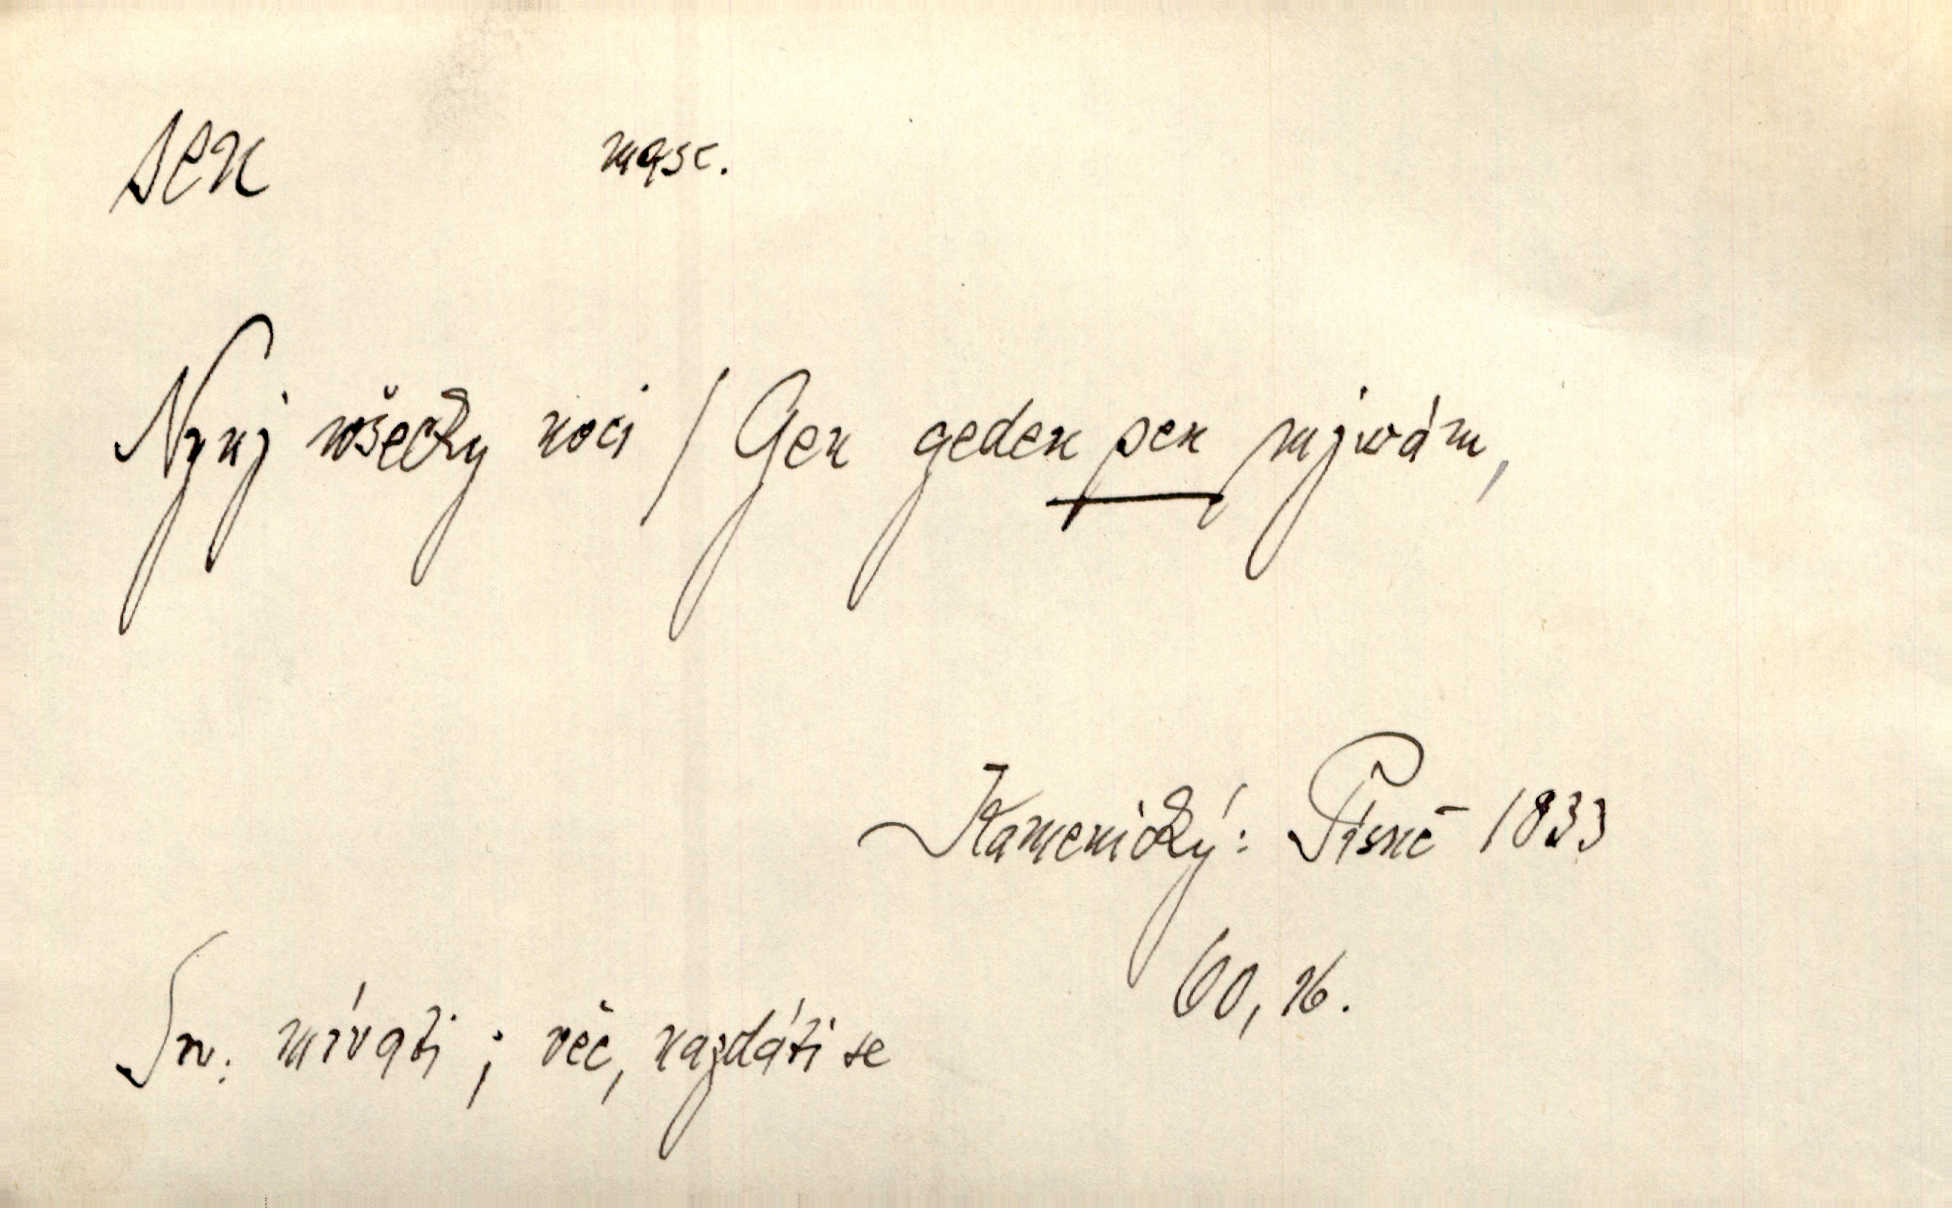 sen masc.
Nynj wšecky noci / Gen geden sen mjwám,
Kamenický: Písně 1833
60, 16.
Sv. mívati; věc, nazdáti se